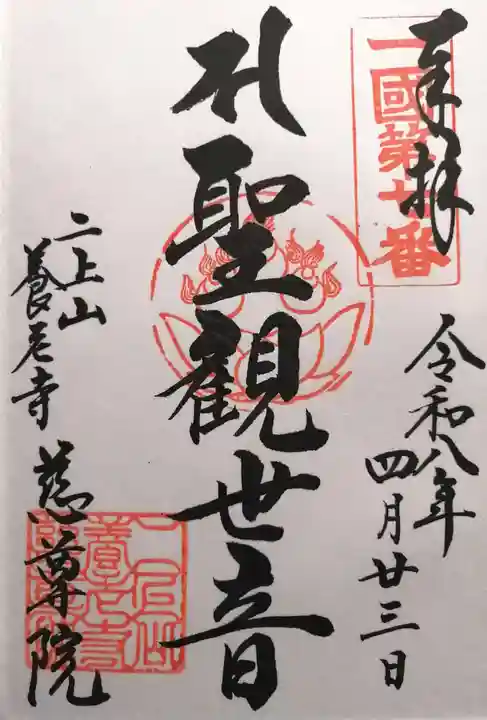 奉拝
一國第七番
令和八年
四月廿三日
聖觀世音
二上山
養老寺
慈尊院
二上山
養老寺
慈尊院